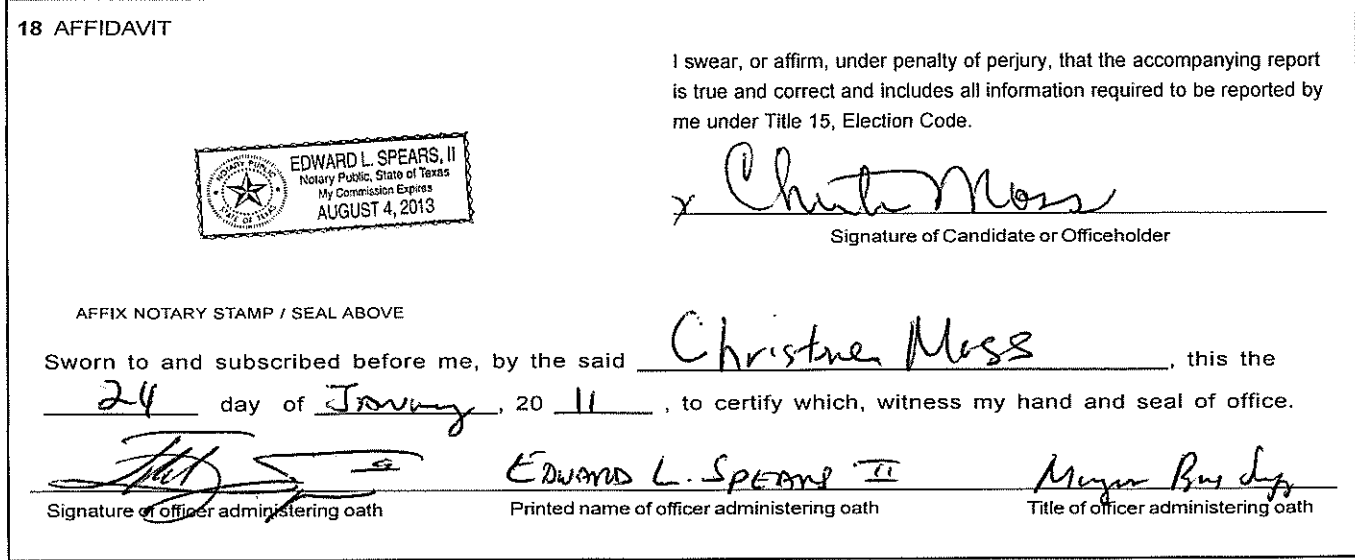 18 AFFIDAVIT
I swear, or affirm, under penalty of perjury, that the accompanying report
is true and correct and includes all information required to be reported by
me under Title 15, Election Code.
NOTARY PUBLIC
STATE OF TEXAS
EDWARD L. SPEARS, II
Notary Public, State of Texas
My Commission Expires
AUGUST 4, 2013
x Moss
Signature of Candidate or Officeholder
AFFIX NOTARY STAMP / SEAL ABOVE
Sworn to and subscribed before me, by the said Christine Moss, this the
24 day of January, 20 11, to certify which, witness my hand and seal of office.
EDWARD L. SPEARS II
Signature of officer administering oath Printed name of officer administering oath Title of officer administering oath